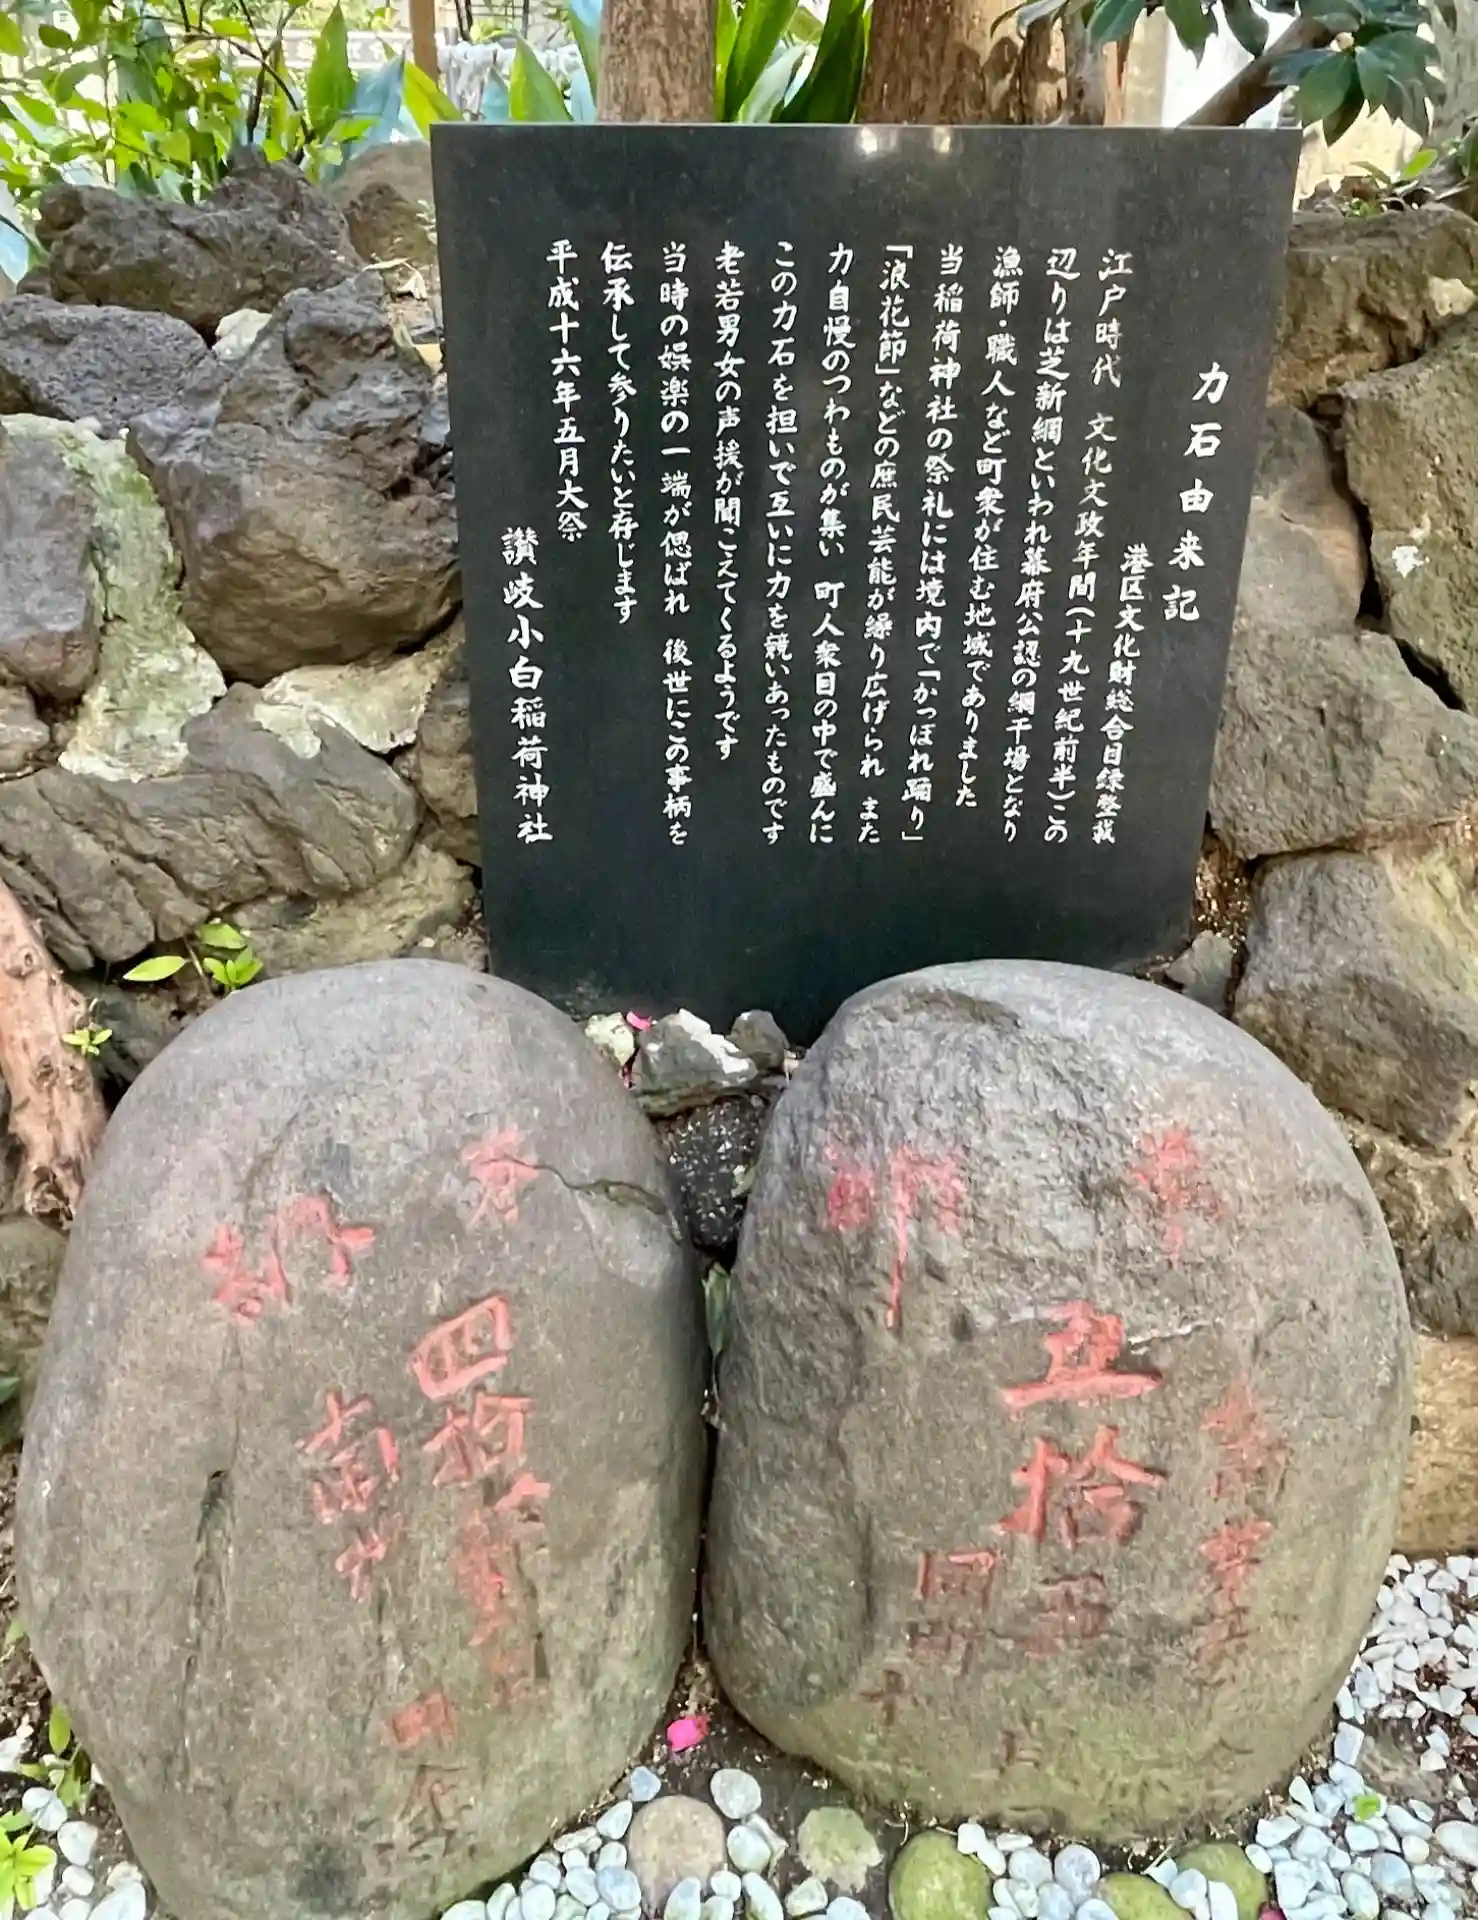 力石由来記
港区文化財総合目録登載
江戸時代　文化文政年間(十九世紀前半)この
辺りは芝新網といわれ幕府公認の網干場となり
漁師・職人など町衆が住む地域でありました
当稲荷神社の祭礼には境内で「かっぽれ踊り」
「浪花節」などの庶民芸能が繰り広げられ　また
力自慢のつわものが集い　町人衆目の中で盛んに
この力石を担いで互いに力を競いあったものです
老若男女の声援が聞こえてくるようです
当時の娯楽の一端が偲ばれ　後世にこの事柄を
伝承して参りたいと存じます
平成十六年五月大祭
讃岐小白稲荷神社
五拾
四拾
南